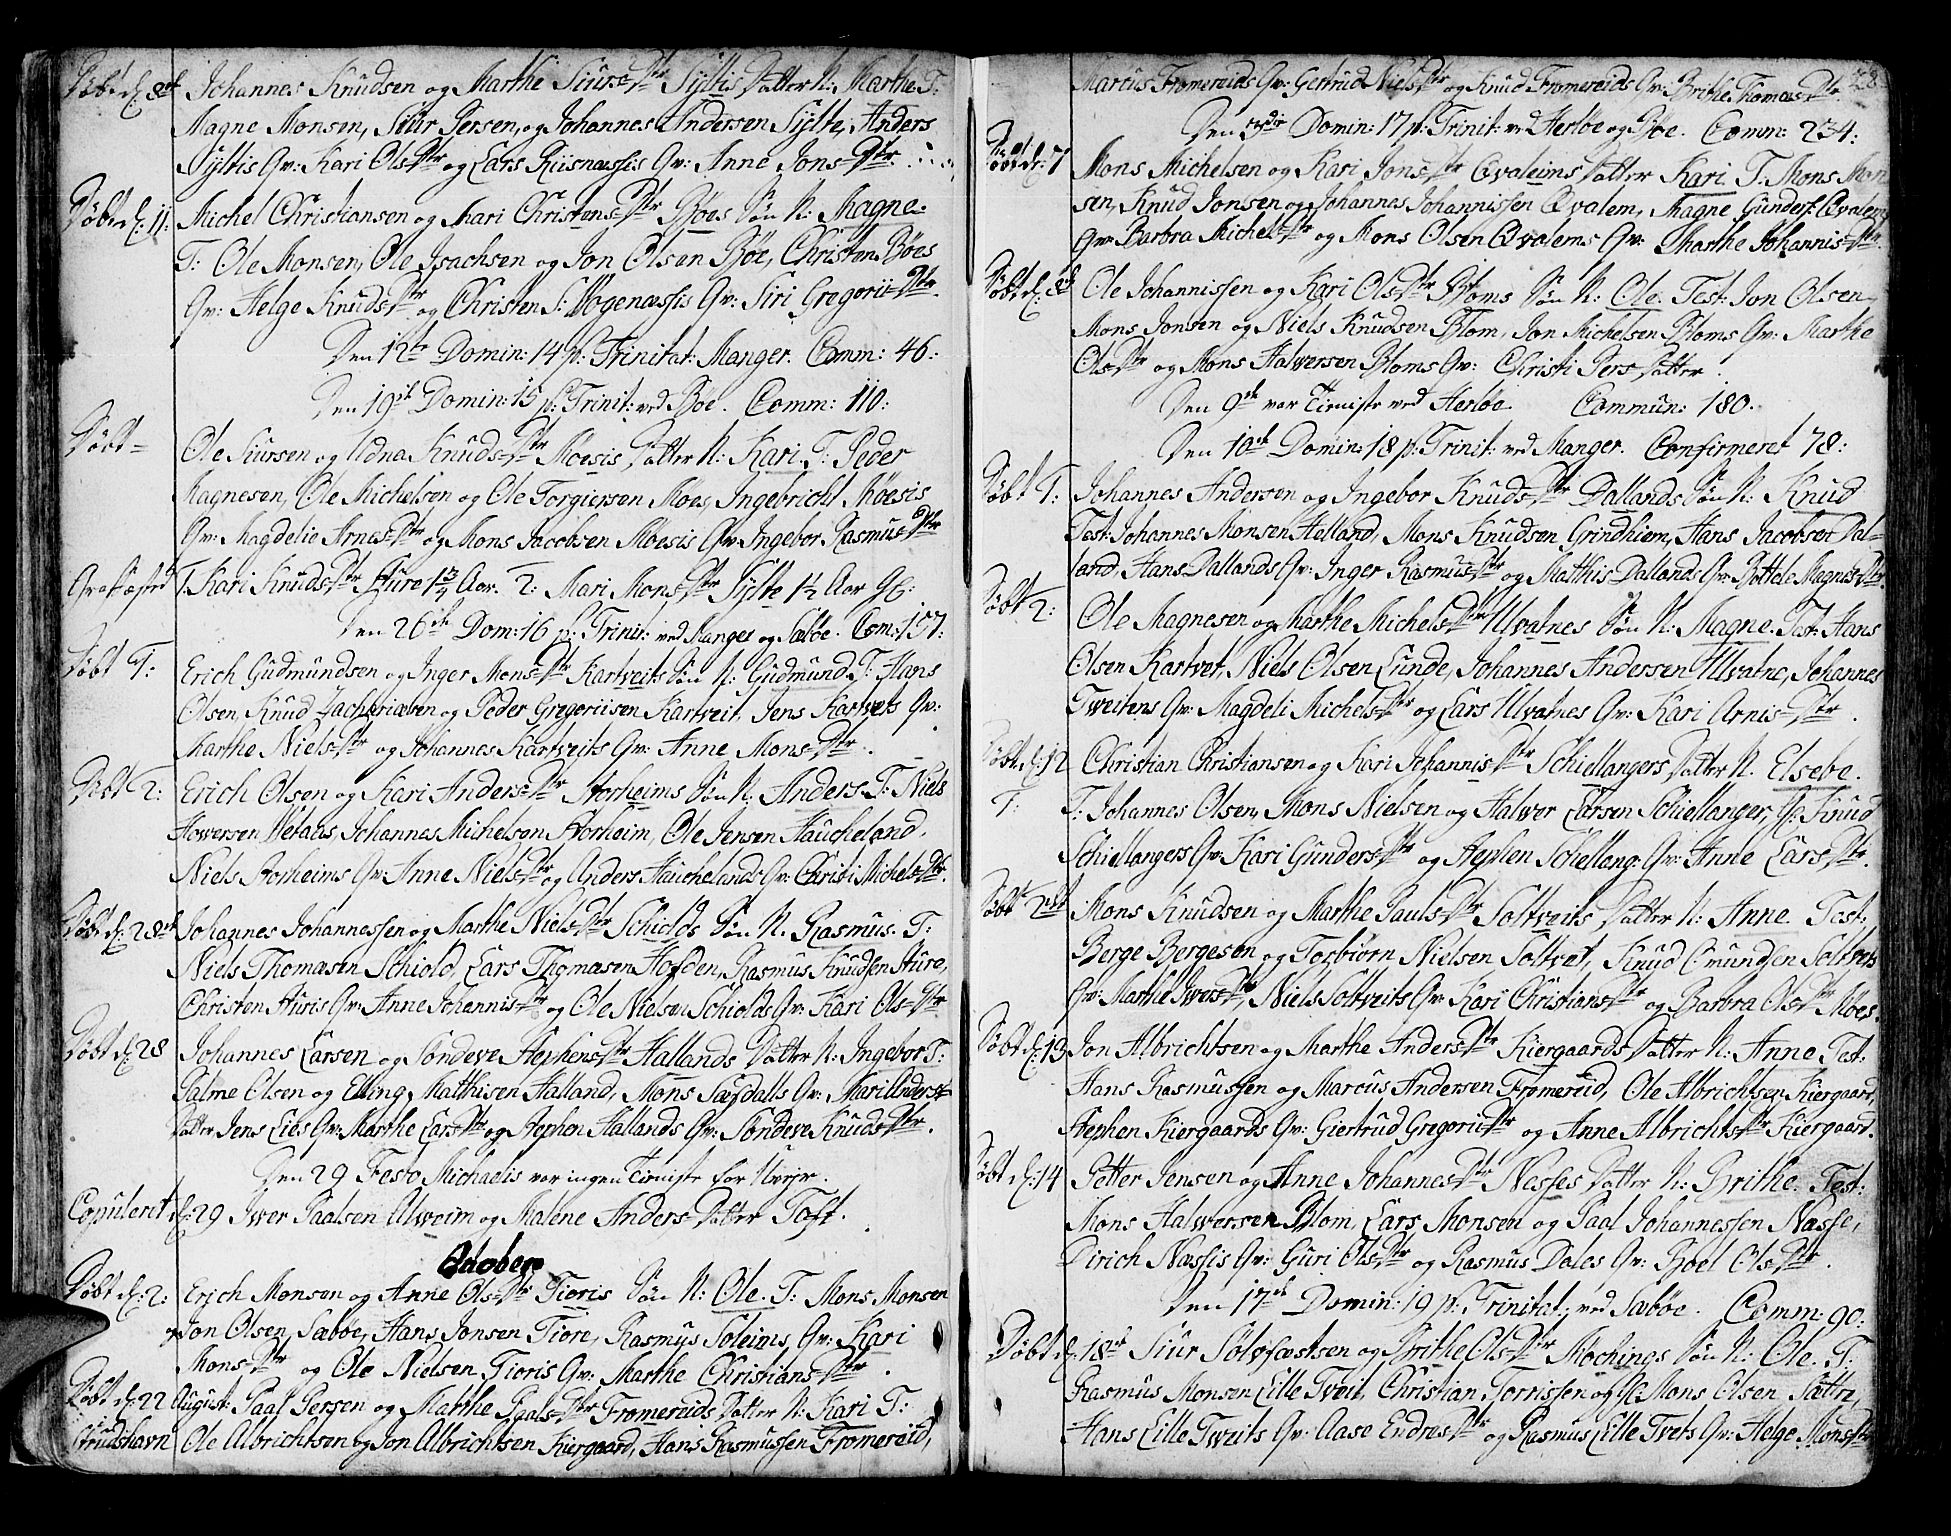 Døbt d: 8de Johannes Knudsen og Marthe Siurs Dtr Syltis Datter N: Marthe T:
Magne Monsen, Siur Persen, og Johannes Andersen Sylte, Anders
Syltis Qv: Kari Ols Dtr og Lars Riisnæssis Qv: Anne Jons Dtr.
Døbt d: 11: Michel Christiansen og Mari Christens Dtr Bøes Søn N: Magne.
T: Ole Monsen, Ole Isachsen og Jon Olsen Bøe, Christen Bøes
Qv: Helge Knuds Dtr og Christen S: Vogenæssis Qv: Siri Gregorii Dtr.
Den 12te Domin: 14 p: Trinitat: Manger. Comm: 46:
Den 19de Domin: 15 p: Trinit: ved Bøe. Comm: 110:
Døbt Ole Siursen og Udna Knuds Dtr Moesis Datter N: Kari. T: Peder
Magnesen, Ole Michelsen og Ole Torgiersen Moes, Ingebricht Moesis
Qv: Magdelie Arnes Dtr og Mons Jacobsen Moesis Qv: Ingebor Rasmus Dtr
Grafæstet 1. Kari Knuds Dtr Hure 1 3/4 Aar. 2: Mari Mons Dtr Sylte 1 1/2 Aar Gl:
Den 26de Dom: 16 p: Trinit: ved Manger og Sæbøe. Com: 157:
Døbt 1: Erich Gudmundsen og Inger Mons Dtr Kartveits Søn N: Gudmund. T: Hans
Olsen, Knud Zachariæsen og Peder Gregoriisen Kartveit, Jens Kartvets Qv:
Marthe Niels Dtr og Johannes Kartveits Qv: Anne Mons Dtr.
Døbt 2: Erich Olsen og Kari Anders Dtr Horheims Søn N: Anders. T: Niels
Howersen Vetaas, Johannes Michelsen Horheim, Ole Jensen Haucheland,
Niels Horheims Qv: Anne Niels Dtr og Anders Hauchelands Qv: Christi Michels Dtr.
Døbt d: 28de Johannes Johannessen og Marthe Niels Dtr Schiolds Søn N: Rasmus. T:
Niels Thomæsen Schiold, Lars Thomæsen Hofden, Rasmus Knudsen Hure,
Christen Huris Qv: Anne Johannis Dtr og Ole Nielsen Schiolds Qv: Kari Ols Dtr
Døbt d: 28 Johannes Larsen og Søndeve Stephens Dtr Hallands Datter N: Ingebor T:
Salme Olsen og Elling Mathisen Halland, Mons Sægdalls Qv: Mari Anders
Datter Jens Lies Qv: Marthe Lars Dtr og Stephen Hallands Qv: Søndeve Knuds Dtr.
Den 29 Festo Michaelis var ingen Tieniste for Uveyr.
Copuleret d: 29 Iwer Paalsen Alveim og Malene Anders Datter Toft.
October
Døbt d: 2: Erich Monsen og Anne Ols Dtr Fioris Søn N: Ole. T: Mons Monsen
og Jon Olsen Sæbøe, Hans Jonsen Fiore, Rasmus Soleims Qv: Kari
Mons Dtr og Ole Nielsen Fioris Qv: Marthe Christians Dtr.
Døbt d: 22 August: Paal Persen og Marthe Paals Dtr Fromereids Datter N: Kari T:
Ole Albrichtsen og Jon Albrichtsen Kiergaard, Hans Rasmussen Fromereid,
28
Marcus Fromereids Qv: Gertrud Niels Dtr og Knud Fromereids Qv: Brithe Thomæs Dtr.
Den 3die Domin: 17 p: Trinit: ved Herløe og Bøe. Comm: 234:
Døbt d: 7 Mons Michelsen og Kari Jons Dtr Qvaleims Datter Kari T: Mons Mon
sen, Knud Jonsen og Johannes Johannissen Qvalem, Magne Gunders. Qvalems
Qv: Barbra Michels Dtr og Mons Olsen Qvalems Qv: Marthe Johannis Dtr
Døbt d: 8de Ole Johannissen og Kari Ols Dtr Bloms Søn N: Ole. Test: Jon Olsen,
Mons Jonsen og Niels Knudsen Blom, Jon Michelsen Bloms Qv: Marthe
Ols Dtr og Mons Halversen Bloms Qv: Christi Pers Datter.
Den 9de var Tieniste ved Herløe. Commun: 180.
Den 10de Domin: 18 p: Trinit: ved Manger. Confirmeret 78:
Døbt 1: Johannes Andersen og Ingebor Knuds Dtr Dallands Søn N: Knud
Test: Johannes Monsen Helland, Mons Knudsen Grindhiem, Hans Jacobsen Dal-
land, Hans Dallands Qv: Inger Rasmus Dtr og Mathis Dallands Qv: Bottele Magnes Dtr.
Døbt 2: Ole Magnesen og Marthe Michels Dtr Ulvatnes Søn N: Magne. Test: Hans
Olsen Kartvet, Niels Olsen Lunde, Johannes Andersen Ulvatne, Johannes
Tweitens Qv: Magdeli Michels Dtr og Lars Ulvatnes Qv: Kari Arnis Dtr.
Døbt d: 12 Christian Christiansen og Kari Johannis Dtr Schiellangers Datter N. Elsebe.
1: T: Johannes Olsen, Mons Nielsen og Halwer Larsen Schiellanger, Gl: Knud
Schiellangers Qv: Kari Gunders Dtr og Stephen Schiellang: Qv: Anne Lars Dtr.
Døbt 2de Mons Knudsen og Marthe Pauls Dtr Soltveits Datter N: Anne Test:
Berge Bergesen og Torbiørn Nielsen Soltvet, Knud Omundsen Soltvets
Qv: Marthe Iwers Dtr, Niels Soltveits Qv: Kari Christians Dtr og Barbra Ols Dtr Moes.
Døbt d: 13 Jon Albrichtsen og Marthe Anders Dtr Kiergaards Datter N: Anne Test:
Hans Rasmussen og Marcus Andersen Fromereid, Ole Albrichtsen Kiergaard,
Stephen Kiergaards Qv: Giertrud Gregorii Dtr og Anne Albrichts Dtr Kiergaard.
Døbt d: 14 Petter Jensen og Anne Johannes Dtr Nesses Datter N: Brithe. Test:
Mons Halwersen Blom, Lars Monsen og Paal Johannessen Næsse,
Dirich Næssis Qv: Guri Ols Dtr og Rasmus Dales Qv: Boel Ols Dtr.
Den 17de Domin: 19 p: Trinitat: ved Sæbøe. Comm: 90:
Døbt d: 18de Siur Sølvfæstsen og Brithe Ols Dtr Mochings Søn N: Ole. T:
Rasmus Monsen Lille Tveit, Christian Torrissen og Gl: Mons Olsen Sættre,
Hans Lille Tweits Qv: Aase Endres Dtr og Rasmus Lille Tvets Qv: Helge Mons Dtr